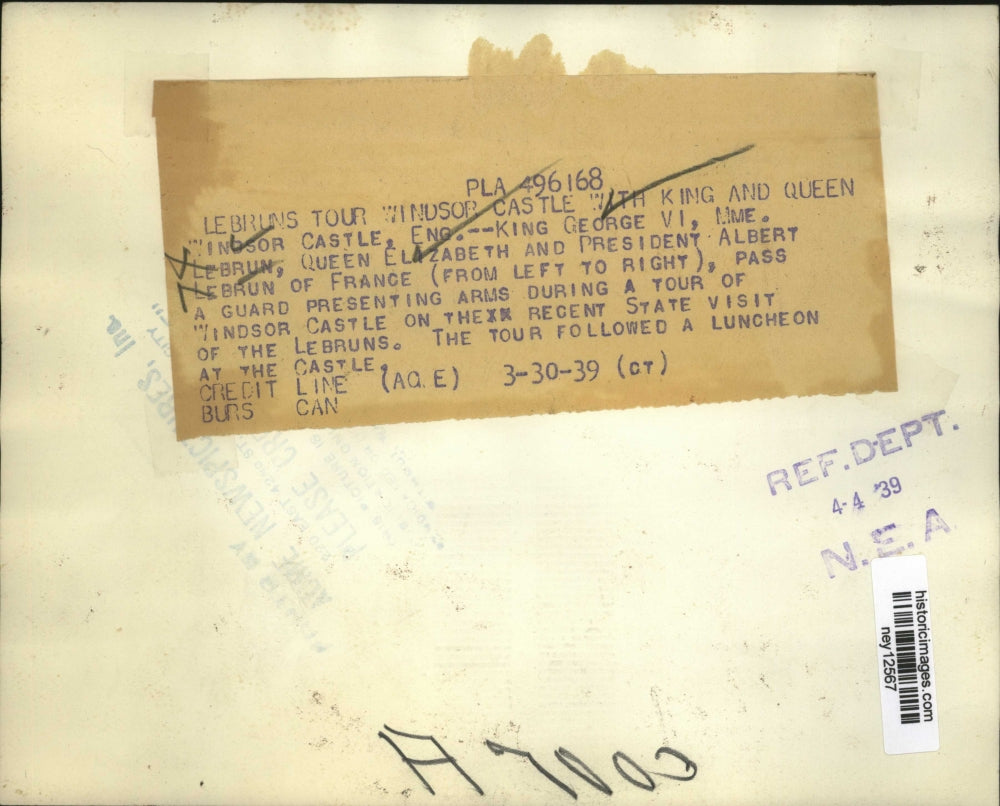 PLA 496168
LEBRUNS TOUR WINDSOR CASTLE WITH KING AND QUEEN
WINDSOR CASTLE, ENG.--KING GEORGE VI, MME.
LEBRUN, QUEEN ELIZABETH AND PRESIDENT ALBERT
LEBRUN OF FRANCE (FROM LEFT TO RIGHT), PASS
A GUARD PRESENTING ARMS DURING A TOUR OF
WINDSOR CASTLE ON THEXX RECENT STATE VISIT
OF THE LEBRUNS. THE TOUR FOLLOWED A LUNCHEON
AT THE CASTLE.
CREDIT LINE (ACME) 3-30-39 (CT)
BURS CAN
REF. DEPT.
4-4 '39
N.E.A.
historicimages.com
ney12567
PLEASE
ACME NEWSPICTURES, Inc.